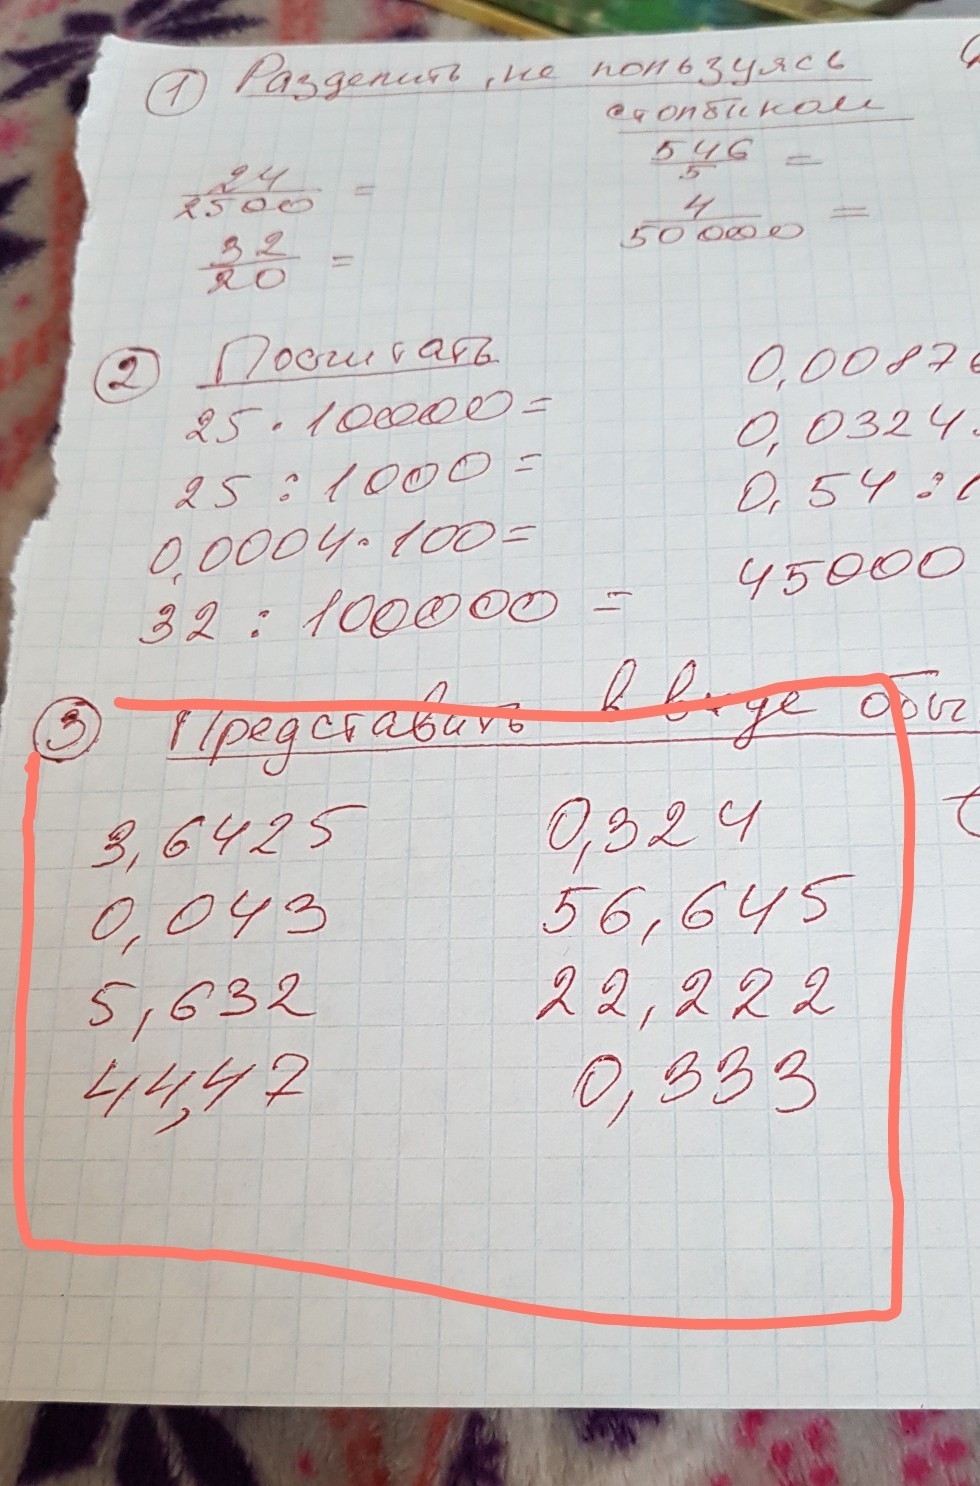 ① Разделить, не пользуясь
столбиком
24/2500 =
546/5 =
32/20 =
4/50000 =
② Посчитать
25 · 10000 =
0,0087
25 : 1000 =
0,0324
0,0004 · 100 =
0,54 :
32 : 100000 =
45000
③ Представить в виде обы
3,6425 0,324
0,043 56,645
5,632 22,222
44,47 0,333